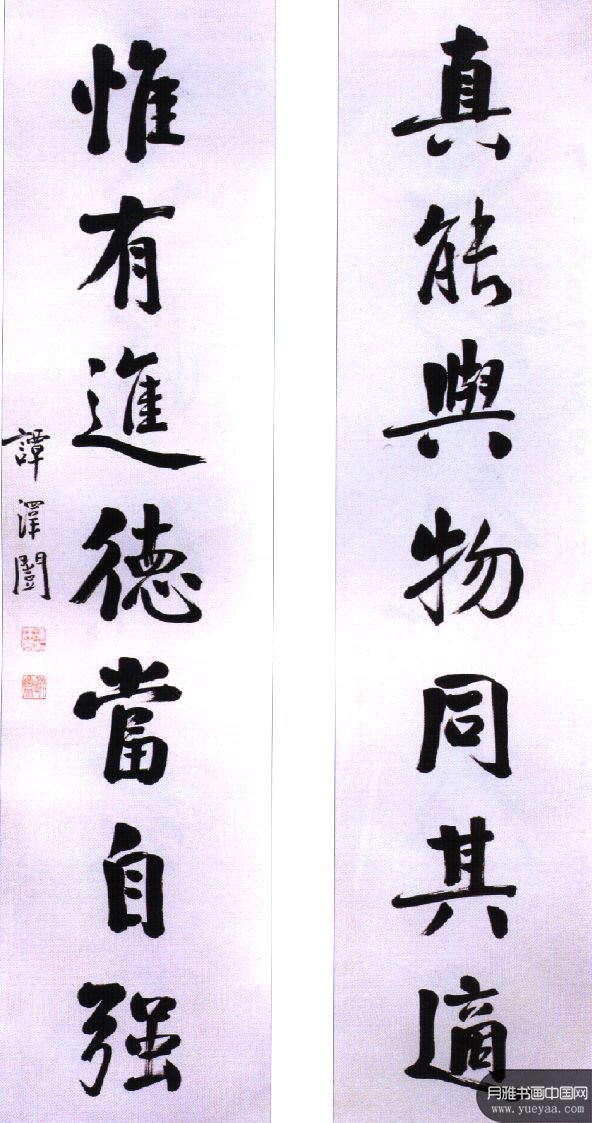 真能與物同其適
惟有進德當自强
譚澤闓
月雅书画中国网
www.yueyaa.com